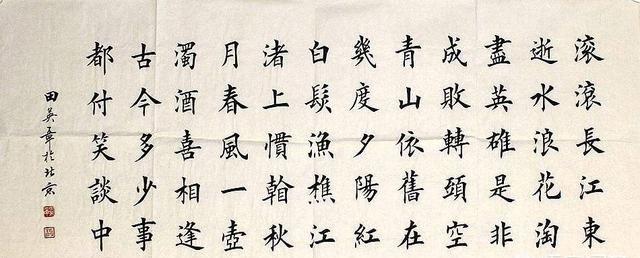 滚滚長江東
逝水浪花淘
盡英雄是非
成敗轉頭空
青山依舊在
幾度夕陽紅
白髮漁樵江
渚上慣看秋
月春風一壺
濁酒喜相逢
古今多少事
都付笑談中
田英章於北京